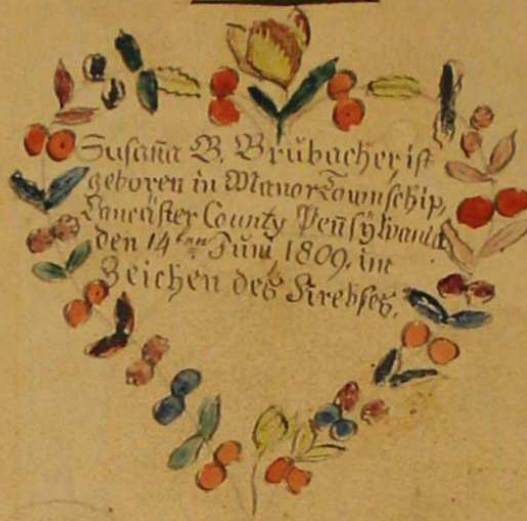 Susan̄a B. Brubacher ist
geboren in Manor Townschip,
Lancäster County Pen̄sÿlvania
den 14ten Juni 1809. im
Zeichen des Krebses.